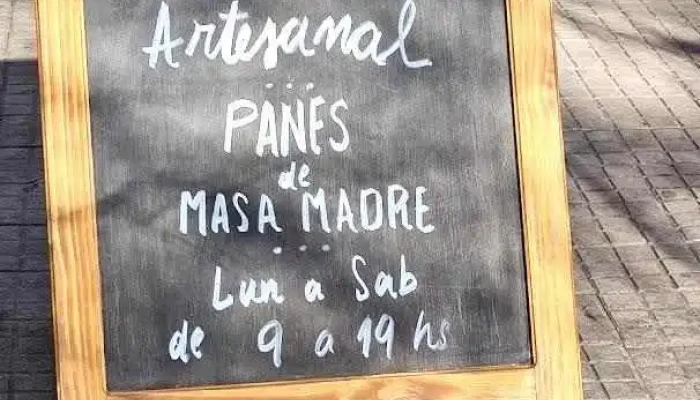 Artesanal
PANES
de
MASA MADRE
Lun a Sab
de 9 a 19 hs